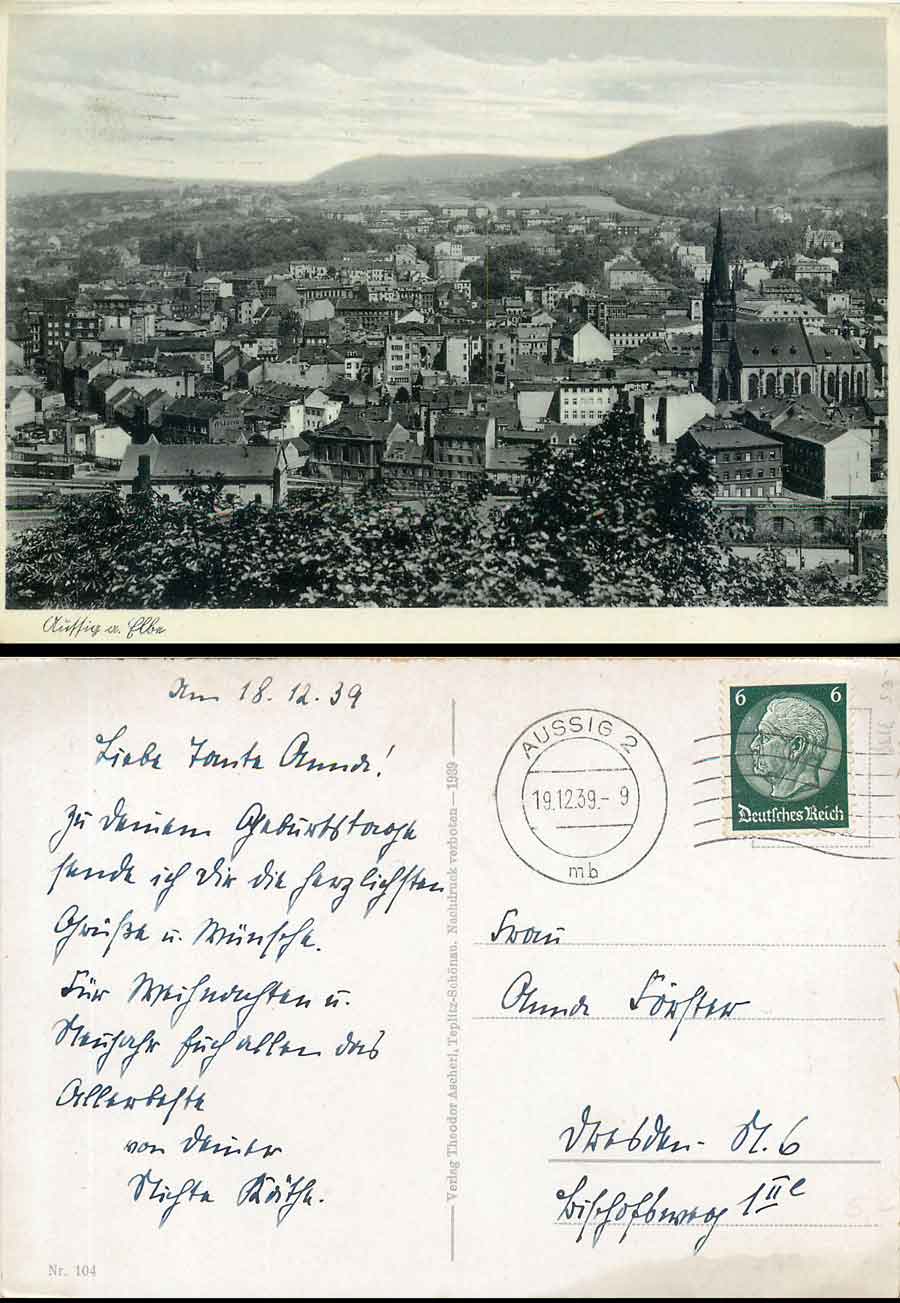 Aussig a. Elbe
Am 18.12.39
Liebe Tante Anna!
Zu Deinem Geburtstage
sende ich Dir die herzlichsten
Grüße u. Wünsche.
Für Weihnachten u.
Neujahr Euch allen das
Allerbeste
von Deiner
Nichte Käthe.
Nr. 104
Verlag Theodor Ascherl, Teplitz-Schönau. Nachdruck verboten — 1939
AUSSIG 2
19.12.39.- 9
mb
6 6
Deutsches Reich
Frau
Anna Förster
Dresden- N. 6
Bischofsweg 1 II